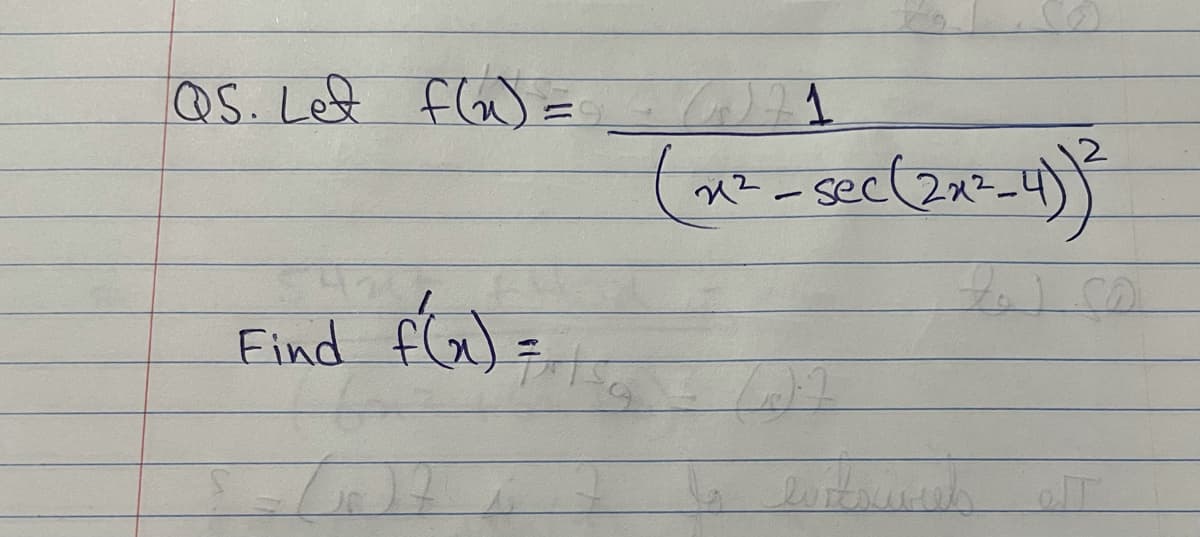 Q5. Let f(x) = 1 / (x² - sec(2x²-4))²
Find f'(x) =